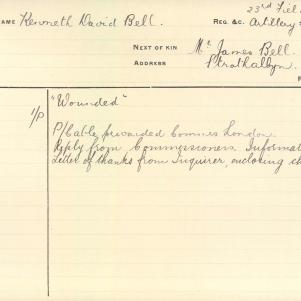 NAME Kenneth David Bell. REG. &C. 23rd Fiel
Artillery
NEXT OF KIN Mr James Bell.
ADDRESS Strathalbyn.
"Wounded"
P/Cable forwarded Commrs London
Reply from Commissioners. Informat
Letter of thanks from Inquirer, enclosing ch